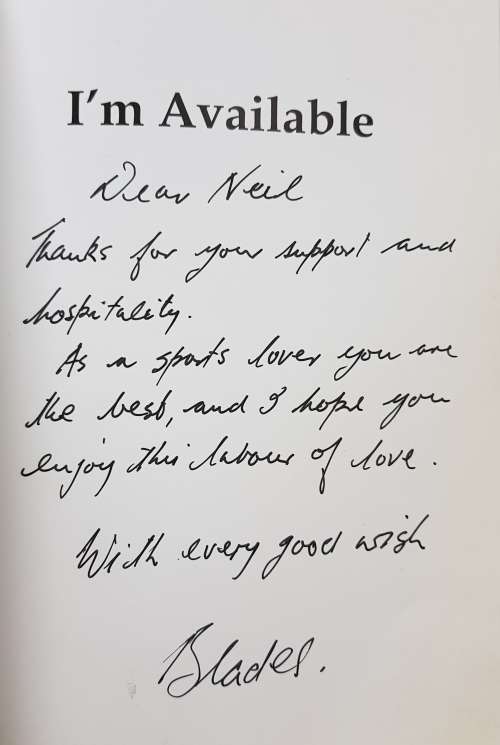 I'm Available
Dear Neil
Thanks for your support and
hospitality.
As a sports lover you are
the best, and I hope you
enjoy this labour of love.
With every good wish
Blades.